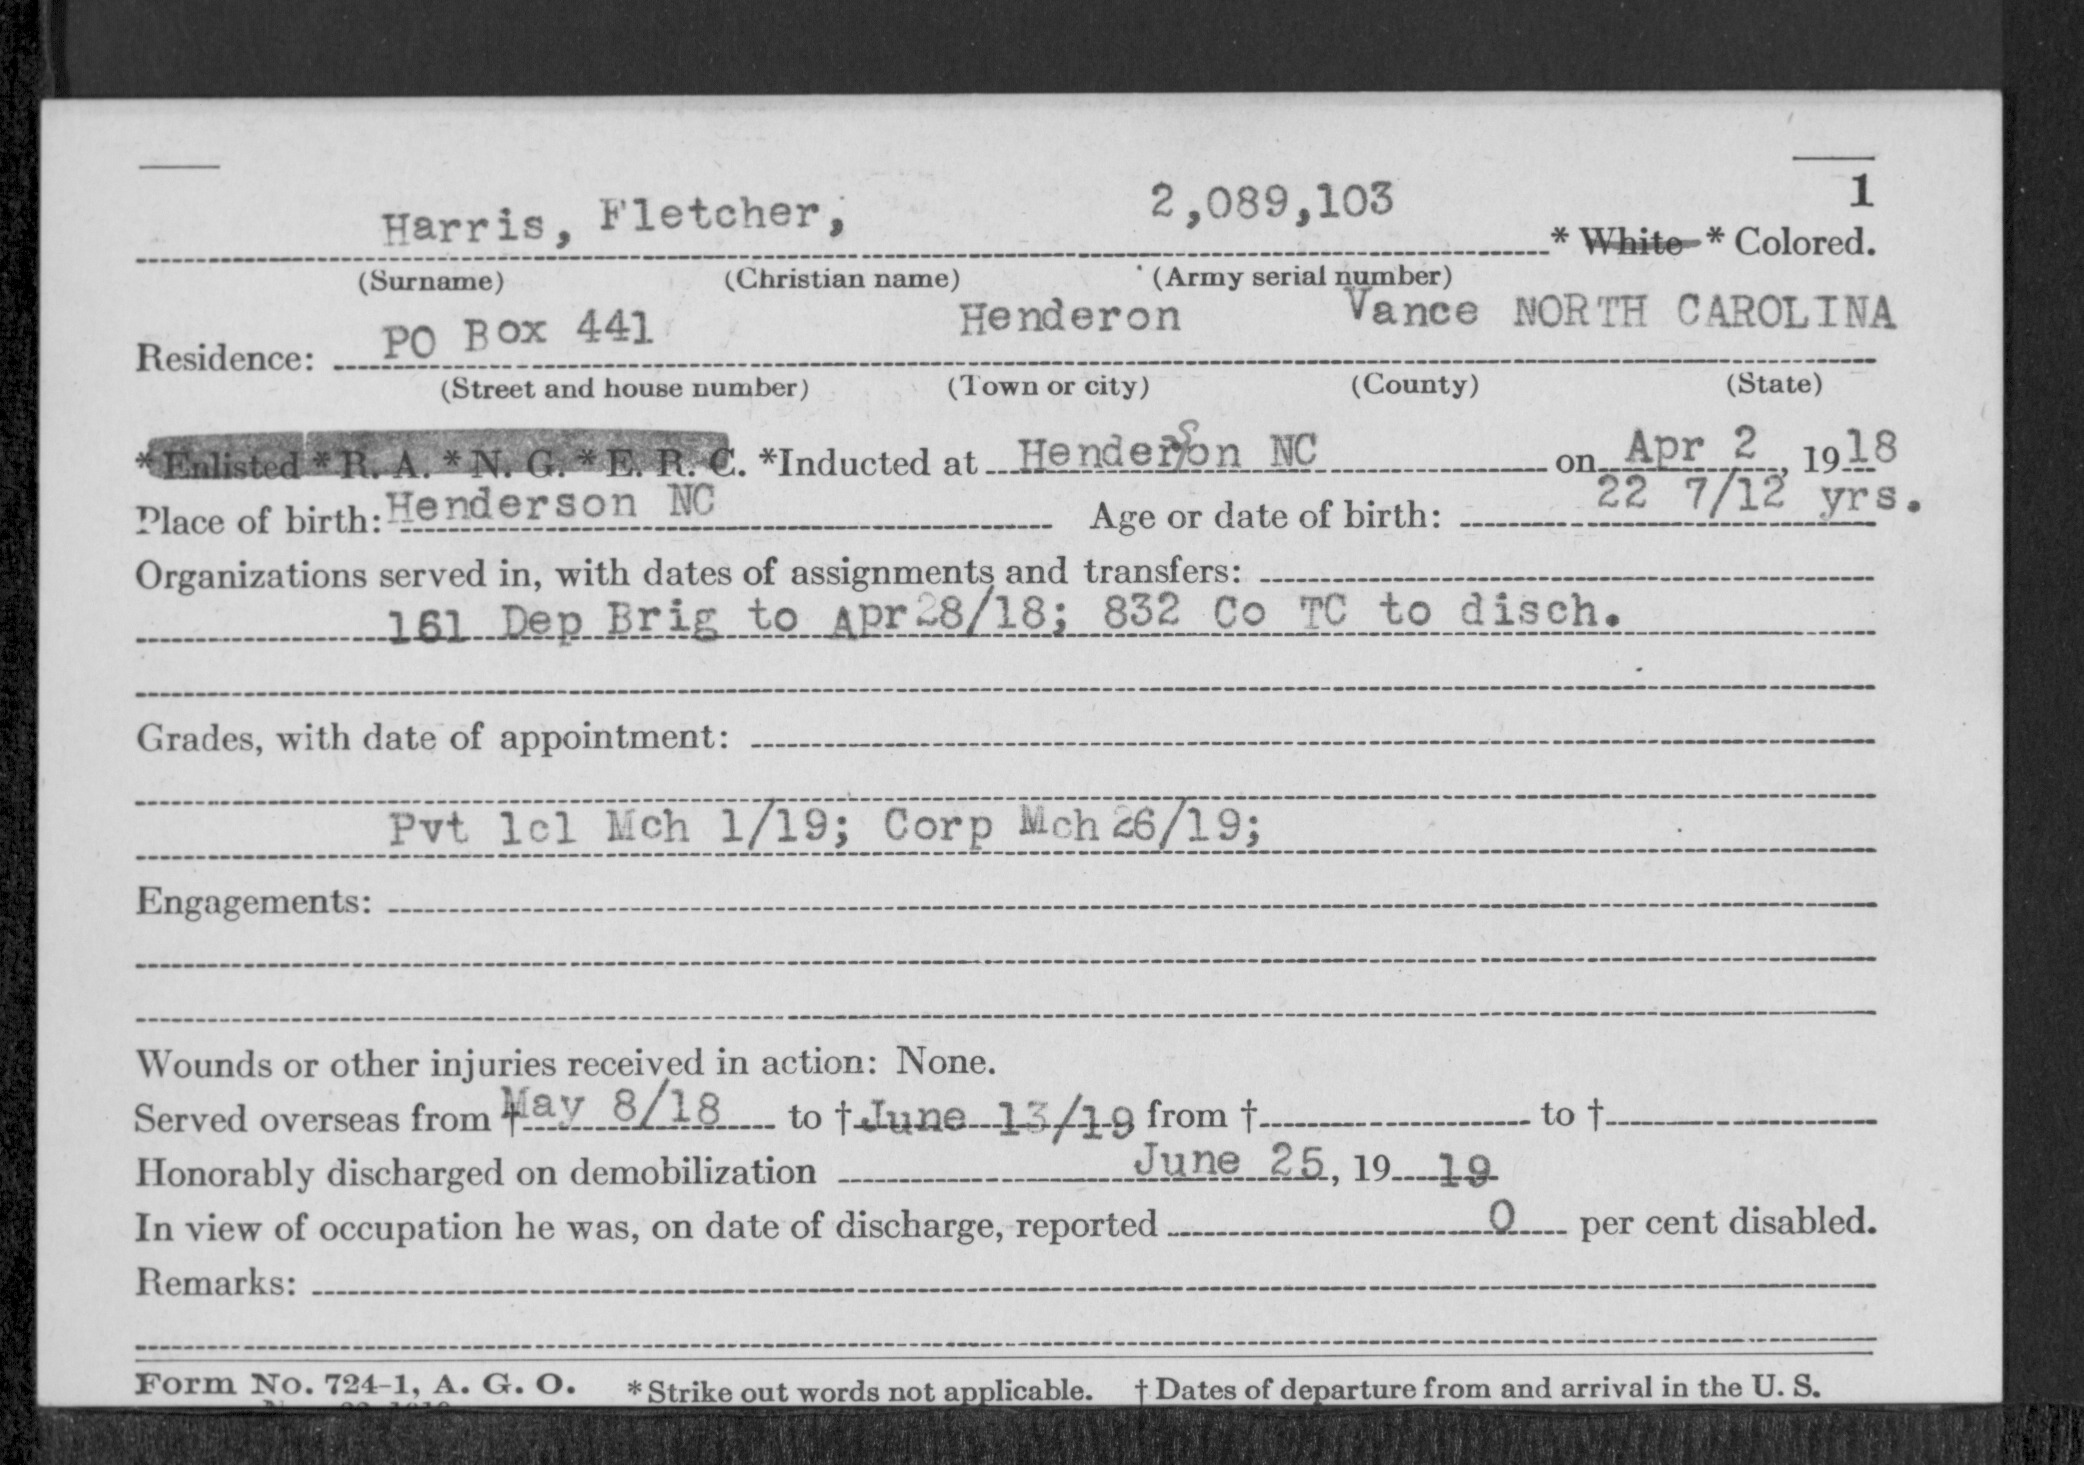 1
Harris, Fletcher, 2,089,103 * White * Colored.
(Surname) (Christian name) (Army serial number)
Residence: PO Box 441 Henderon Vance NORTH CAROLINA
(Street and house number) (Town or city) (County) (State)
*Enlisted *R. A. *N. G. *E. R. C. *Inducted at Henderson NC on Apr 2, 1918
Place of birth: Henderson NC Age or date of birth: 22 7/12 yrs.
Organizations served in, with dates of assignments and transfers:
161 Dep Brig to Apr 28/18; 832 Co TC to disch.
Grades, with date of appointment:
Pvt 1cl Mch 1/19; Corp Mch 26/19;
Engagements:
Wounds or other injuries received in action: None.
Served overseas from † May 8/18 to † June 13/19 from † to †
Honorably discharged on demobilization June 25, 19 19
In view of occupation he was, on date of discharge, reported 0 per cent disabled.
Remarks:
Form No. 724-1, A. G. O. *Strike out words not applicable. †Dates of departure from and arrival in the U. S.